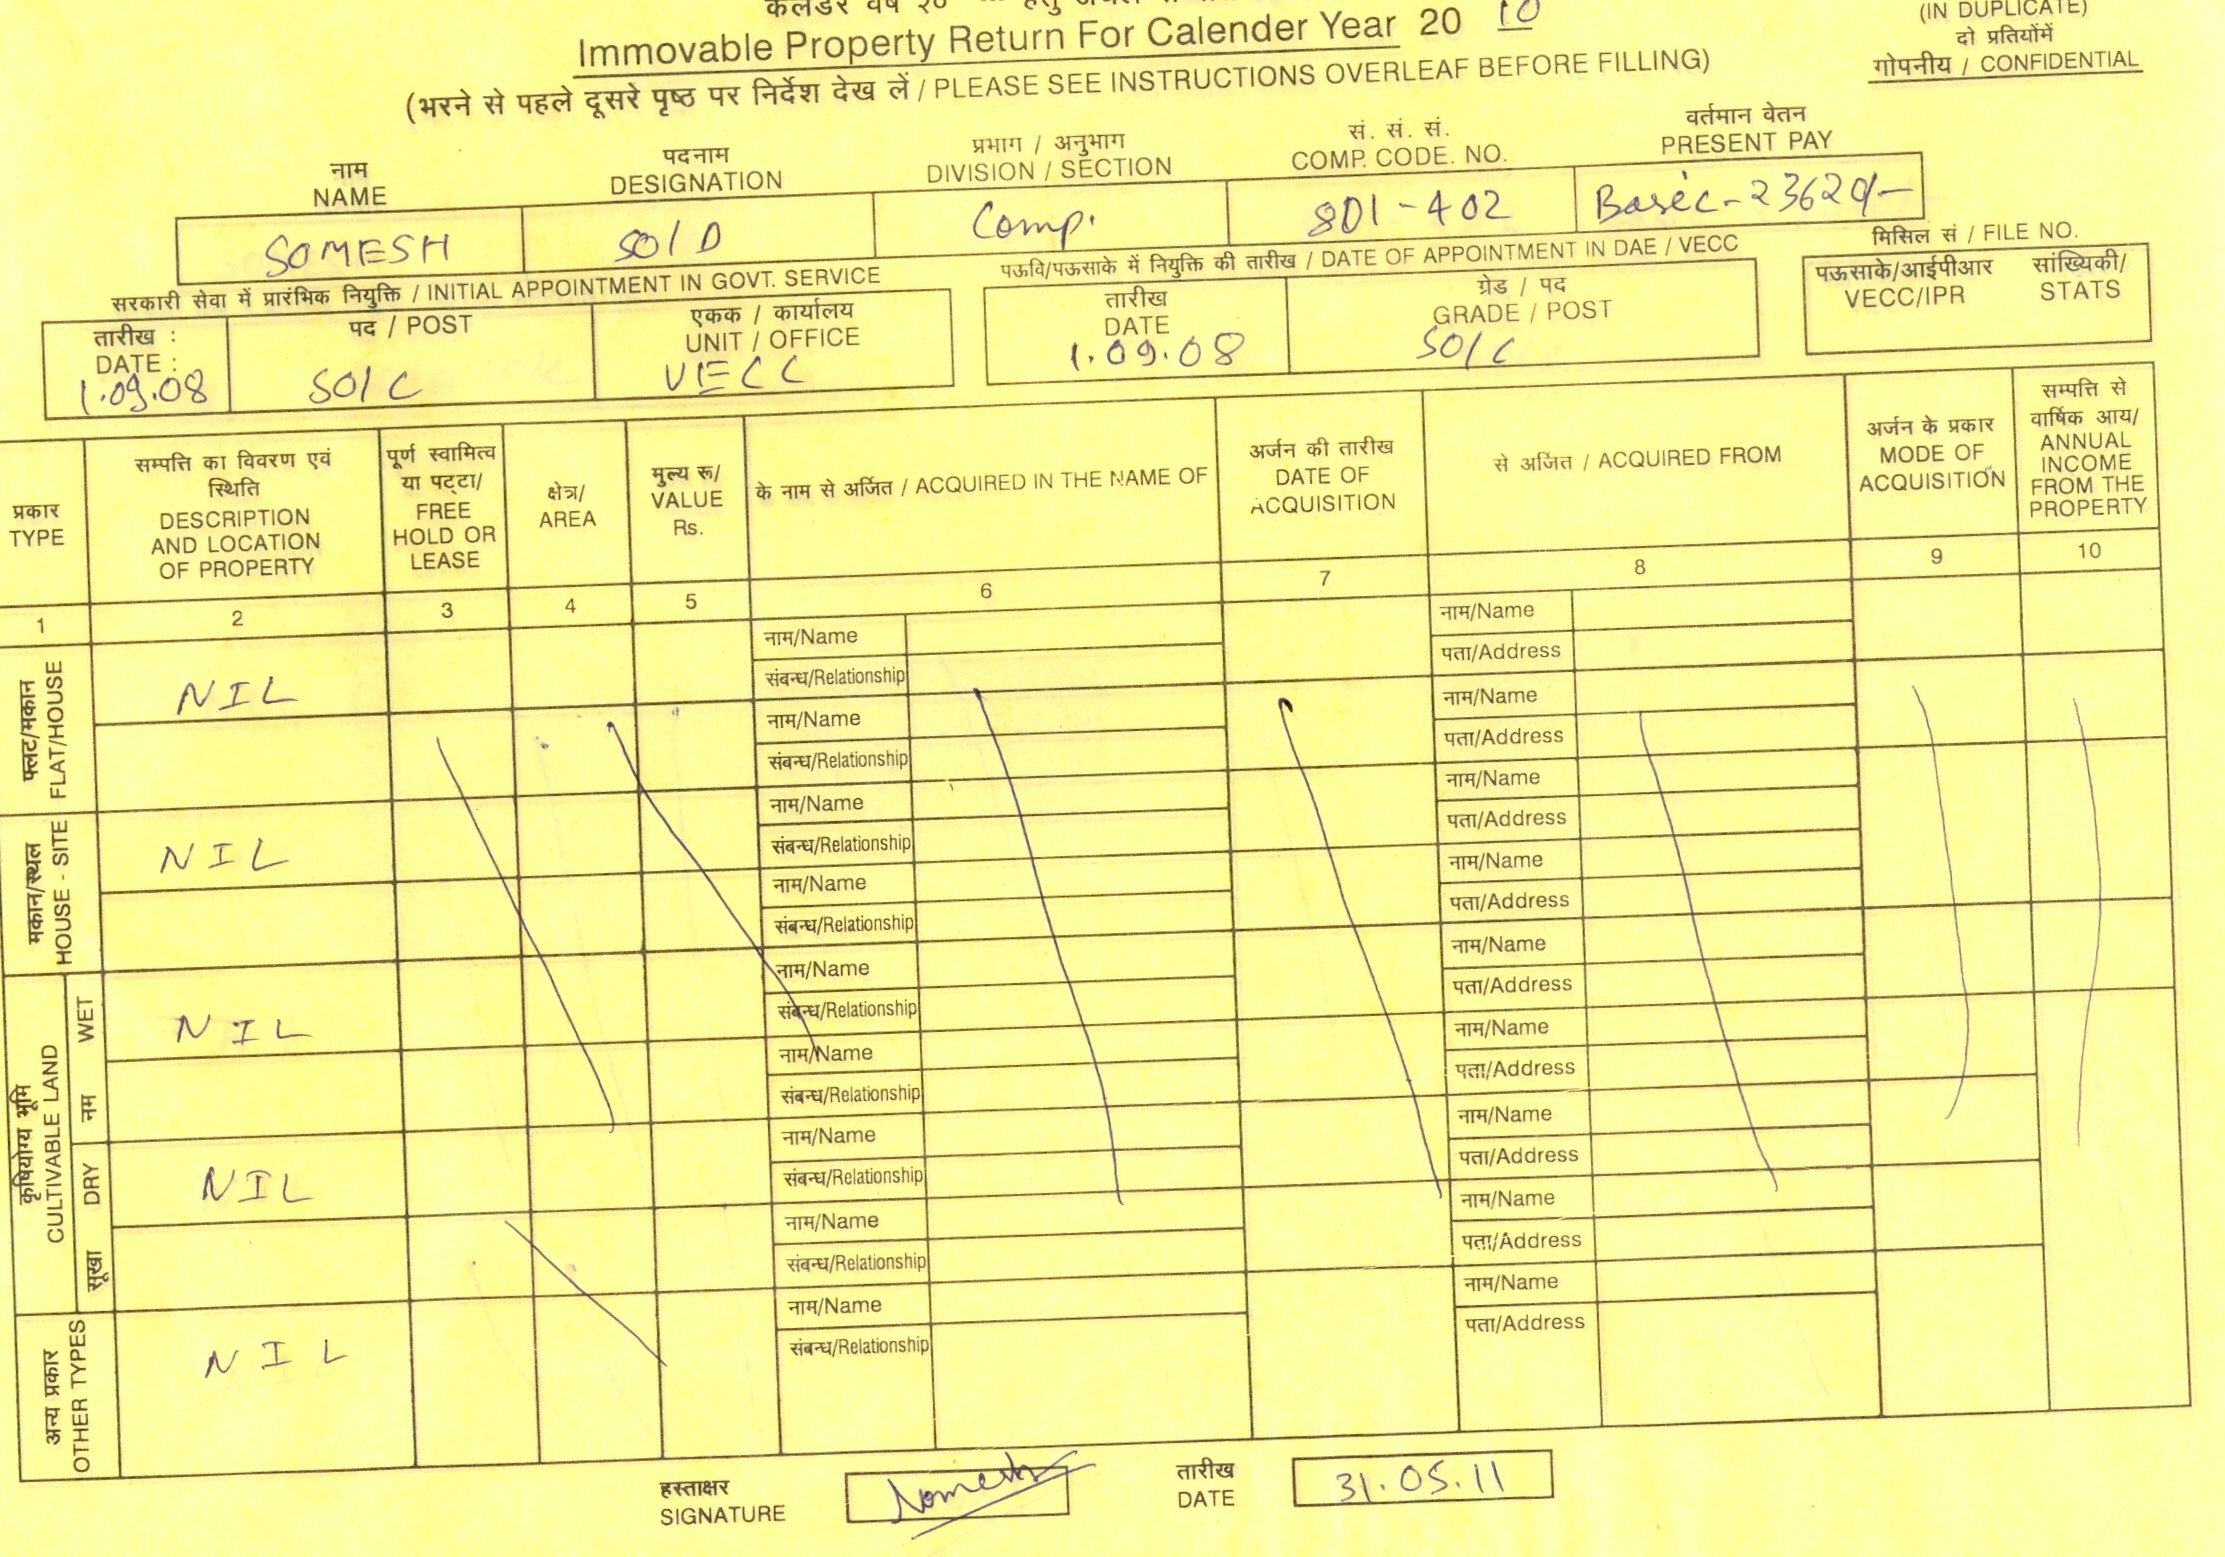 Immovable Property Return For Calender Year 20 10
(IN DUPLICATE)
दो प्रतियोंमें
गोपनीय / CONFIDENTIAL
(भरने से पहले दूसरे पृष्ठ पर निर्देश देख लें / PLEASE SEE INSTRUCTIONS OVERLEAF BEFORE FILLING)
नाम
NAME
पदनाम
DESIGNATION
प्रभाग / अनुभाग
DIVISION / SECTION
सं. सं. सं.
COMP. CODE. NO.
वर्तमान वेतन
PRESENT PAY
SOMESH
SO/D
Comp.
801-402
Basic-23620/-
सरकारी सेवा में प्रारंभिक नियुक्ति / INITIAL APPOINTMENT IN GOVT. SERVICE
पऊवि/पऊसाके में नियुक्ति की तारीख / DATE OF APPOINTMENT IN DAE / VECC
मिसिल सं / FILE NO.
तारीख :
DATE :
1.09.08
पद / POST
SO/C
एकक / कार्यालय
UNIT / OFFICE
VECC
तारीख
DATE
1.09.08
ग्रेड / पद
GRADE / POST
SO/C
पऊसाके/आईपीआर
VECC/IPR
सांख्यिकी/
STATS
प्रकार
TYPE
सम्पत्ति का विवरण एवं
स्थिति
DESCRIPTION
AND LOCATION
OF PROPERTY
पूर्ण स्वामित्व
या पट्टा/
FREE
HOLD OR
LEASE
क्षेत्र/
AREA
मुल्य रू/
VALUE
Rs.
के नाम से अर्जित / ACQUIRED IN THE NAME OF
अर्जन की तारीख
DATE OF
ACQUISITION
से अर्जित / ACQUIRED FROM
अर्जन के प्रकार
MODE OF
ACQUISITION
सम्पत्ति से
वार्षिक आय/
ANNUAL
INCOME
FROM THE
PROPERTY
1
2
3
4
5
6
7
8
9
10
फ्लैट/मकान
FLAT/HOUSE
NIL
नाम/Name
संबन्ध/Relationship
नाम/Name
पता/Address
नाम/Name
संबन्ध/Relationship
नाम/Name
पता/Address
मकान/स्थल
HOUSE - SITE
NIL
नाम/Name
संबन्ध/Relationship
नाम/Name
पता/Address
नाम/Name
संबन्ध/Relationship
नाम/Name
पता/Address
कृषियोग्य भूमि
CULTIVABLE LAND
नम WET
NIL
नाम/Name
संबन्ध/Relationship
नाम/Name
पता/Address
नाम/Name
संबन्ध/Relationship
नाम/Name
पता/Address
सूखा DRY
NIL
नाम/Name
संबन्ध/Relationship
नाम/Name
पता/Address
नाम/Name
संबन्ध/Relationship
नाम/Name
पता/Address
अन्य प्रकार
OTHER TYPES
NIL
नाम/Name
संबन्ध/Relationship
नाम/Name
पता/Address
हस्ताक्षर
SIGNATURE
तारीख
DATE
31.05.11